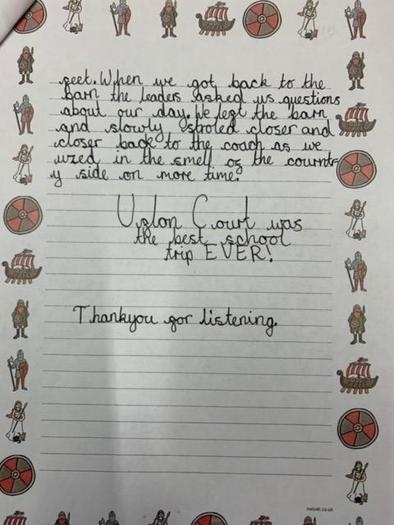 feet. When we got back to the
barn the leaders asked us questions
about our day. We left the barn
and slowly stroled closer and
closer back to the coach as we
in the smell of the countr
y side on more time.
Ufton Court was
the best school
trip EVER!
Thankyou for listening.